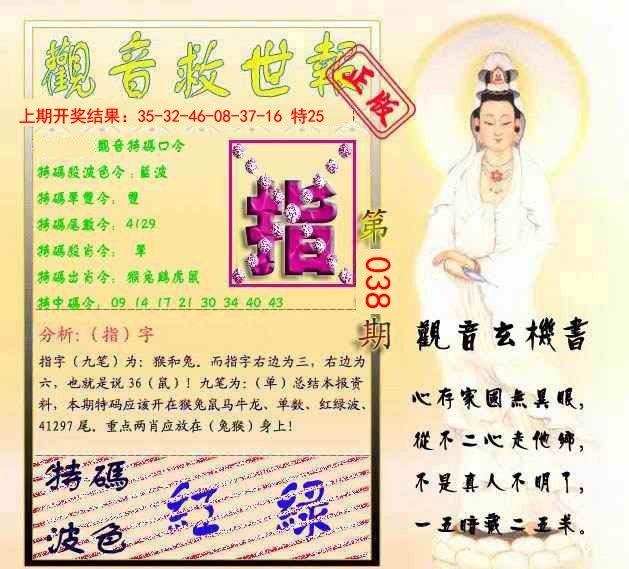 觀音救世報
正版
上期开奖结果：35-32-46-08-37-16 特25
觀音特碼口令
特碼段波色令：藍波
特碼單雙令：雙
特碼尾數令：4129
特碼段肖令：單
特碼出肖令：猴兔鷄虎鼠
特中碼令：09 14 17 21 30 34 40 43
指
第038期
分析:（指）字
指字（九笔）为：猴和兔。而指字右边为三，右边为
六，也就是说36（鼠）！九笔为:（单）总结本报资
料，本期特码应该开在猴兔鼠马牛龙、单数、红绿波、
41297尾。重点两肖应放在（兔猴）身上！
特碼
波色
紅 綠
觀音玄機書
心存家國無異眼，
從不二心走他鄉，
不是真人不明了，
一五暗藏二五来。